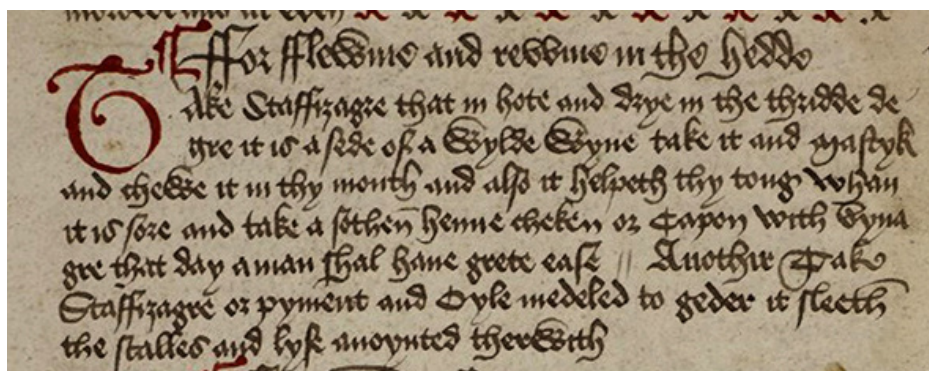 ¶ ffor fflewme and rewme in the hedde
Take Staffizagre that in hote and drye in the thridde de
gre it is a sede of a Wylde Wyne take it and mastyk
and chewe it in thy mouth and also it helpeth thy tong whan
it is sore and take a sothen henne cheken or Capon with Vyna
gre that day a man shal haue grete ease // Anothir Take
Staffizagre or pyment and Oyle medeled to geder it sleeth
the scalles and lyse anoynted therwith